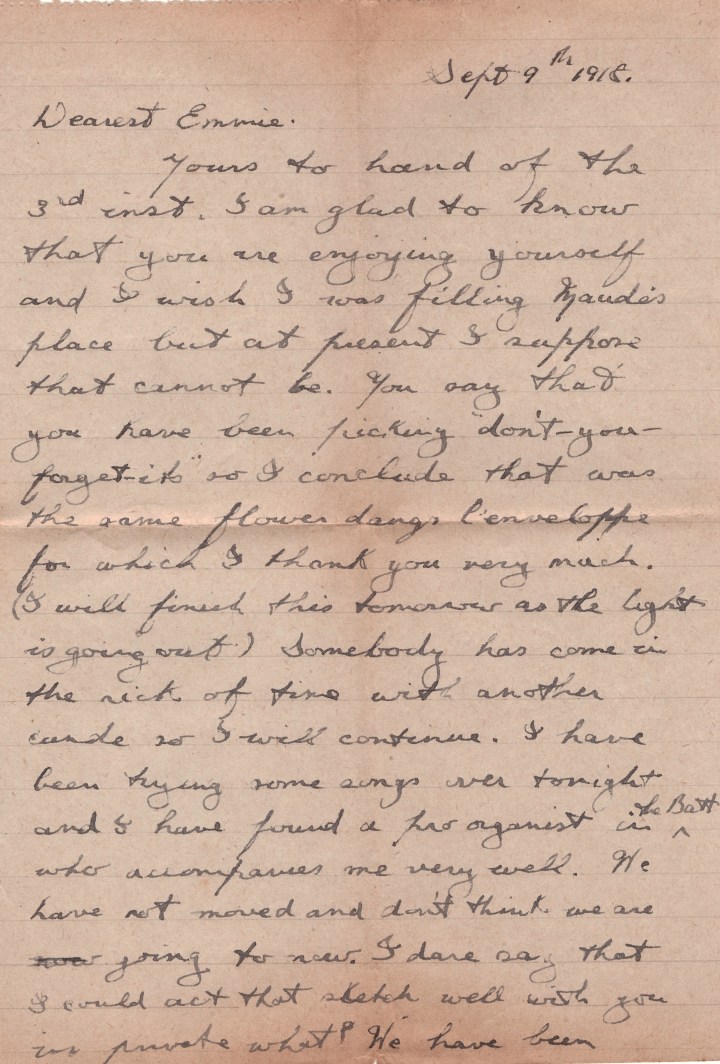 Sept 9th 1918.
Dearest Emmie.
Yours to hand of the
3rd inst. I am glad to know
that you are enjoying yourself
and I wish I was filling Maude's
place but at present I suppose
that cannot be. You say that
you have been picking "don't-you-
forget-its" so I conclude that was
the same flower dangs l'enveloppe
for which I thank you very much.
(I will finish this tomorrow as the light
is going out!) Somebody has come in
the nick of time with another
so I will continue. I have
been trying some songs over tonight
and I have found a pro organist in the Batt
who accompanies me very well. We
have not moved and don't think we are
now going to now. I dare say that
I could act that sketch well with you
in private what? We have been